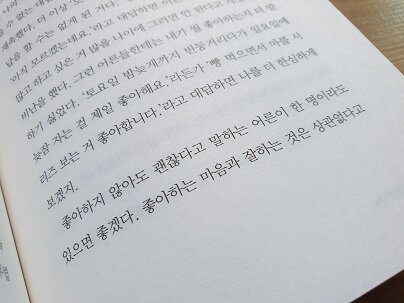 수 없는
채웠다. 더 이상
답을 할 수는 없게 된 거다.
아직 모르겠는데요.'라고 대답하면 어른들은
않고 하고 싶은 거 많을 나이에 그러면 안 된다고
비난을 했다. 그런 어른들한테는 내가 뭘 좋아하는지 더 말
하기 싫었다. '토요일 밤늦게까지 빈둥거리다가 일요일에
늦잠 자는 걸 제일 좋아해요.'라든가 '빵 먹으면서 마블 시
리즈 보는 거 좋아합니다.'라고 대답하면 나를 더 한심하게
보겠지.
좋아하지 않아도 괜찮다고 말하는 어른이 한 명이라도
있으면 좋겠다. 좋아하는 마음과 잘하는 것은 상관없다고